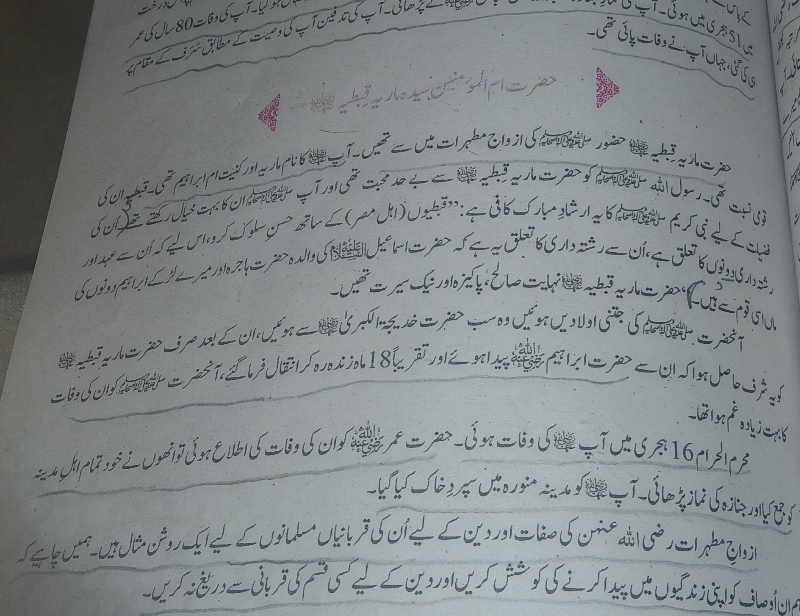 میں 51 ہجری میں ہوئی۔ آپ کی
کے پڑھائی۔ آپ کی تدفین آپ کی وصیت کے مطابق سَرَف کے مقام پر
کی گئی، جہاں آپ نے وفات پائی تھی۔ آپ کی وفات 80 سال کی عمر
حضرت ام المؤمنین سیدہ ماریہ قبطیہ رضی اللہ عنہا
حضرت ماریہ قبطیہ رضی اللہ عنہا حضور صلی اللہ علیہ وسلم کی ازواج مطہرات میں سے تھیں۔ آپ رضی اللہ عنہا کا نام ماریہ اور کنیت ام ابراہیم تھی۔ قبطیہ ان کی
قومی نسبت تھی۔ رسول اللہ صلی اللہ علیہ وسلم کو حضرت ماریہ قبطیہ رضی اللہ عنہا سے بے حد محبت تھی اور آپ صلی اللہ علیہ وسلم ان کا بہت خیال رکھتے تھے۔ ان کی
فضیلت کے لیے نبی کریم صلی اللہ علیہ وسلم کا یہ ارشادِ مبارک کافی ہے: "قبطیوں (اہل مصر) کے ساتھ حسنِ سلوک کرو، اس لیے کہ اُن سے عہد اور
رشتہ داری دونوں کا تعلق ہے، اُن سے رشتہ داری کا تعلق یہ ہے کہ حضرت اسماعیل علیہ السلام کی والدہ حضرت ہاجرہ اور میرے لڑکے ابراہیم دونوں کی
ماں اسی قوم سے ہیں۔" حضرت ماریہ قبطیہ رضی اللہ عنہا نہایت صالح، پاکیزہ اور نیک سیرت تھیں۔
آنحضرت صلی اللہ علیہ وسلم کی جتنی اولادیں ہوئیں وہ سب حضرت خدیجۃ الکبریٰ رضی اللہ عنہا سے ہوئیں، ان کے بعد صرف حضرت ماریہ قبطیہ رضی اللہ عنہا
کو یہ شرف حاصل ہوا کہ ان سے حضرت ابراہیم رضی اللہ عنہ پیدا ہوئے اور تقریباً 18 ماہ زندہ رہ کر انتقال فرما گئے، آنحضرت صلی اللہ علیہ وسلم کو ان کی وفات
کا بہت زیادہ غم ہوا تھا۔
محرم الحرام 16 ہجری میں آپ رضی اللہ عنہا کی وفات ہوئی۔ حضرت عمر رضی اللہ عنہ کو ان کی وفات کی اطلاع ہوئی تو انھوں نے خود تمام اہلِ مدینہ
کو جمع کیا اور جنازہ کی نماز پڑھائی۔ آپ رضی اللہ عنہا کو مدینہ منورہ میں سپردِ خاک کیا گیا۔
ازواجِ مطہرات رضی اللہ عنہن کی صفات اور دین کے لیے اُن کی قربانیاں مسلمانوں کے لیے ایک روشن مثال ہیں۔ ہمیں چاہیے کہ
ہم ان اُوصاف کو اپنی زندگیوں میں پیدا کرنے کی کوشش کریں اور دین کے لیے کسی قسم کی قربانی سے دریغ نہ کریں۔